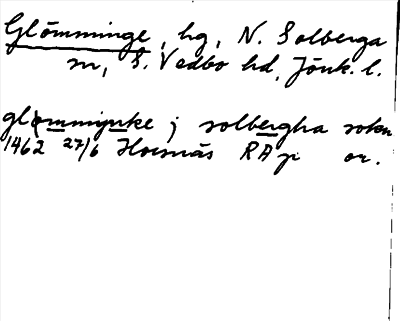 Glömminge, hg, N. Solberga
sn, S. Vedbo hd, Jönk. l.
glømmijnke j solbergha sokn
1462 27/6 Hornnäs RAp or.